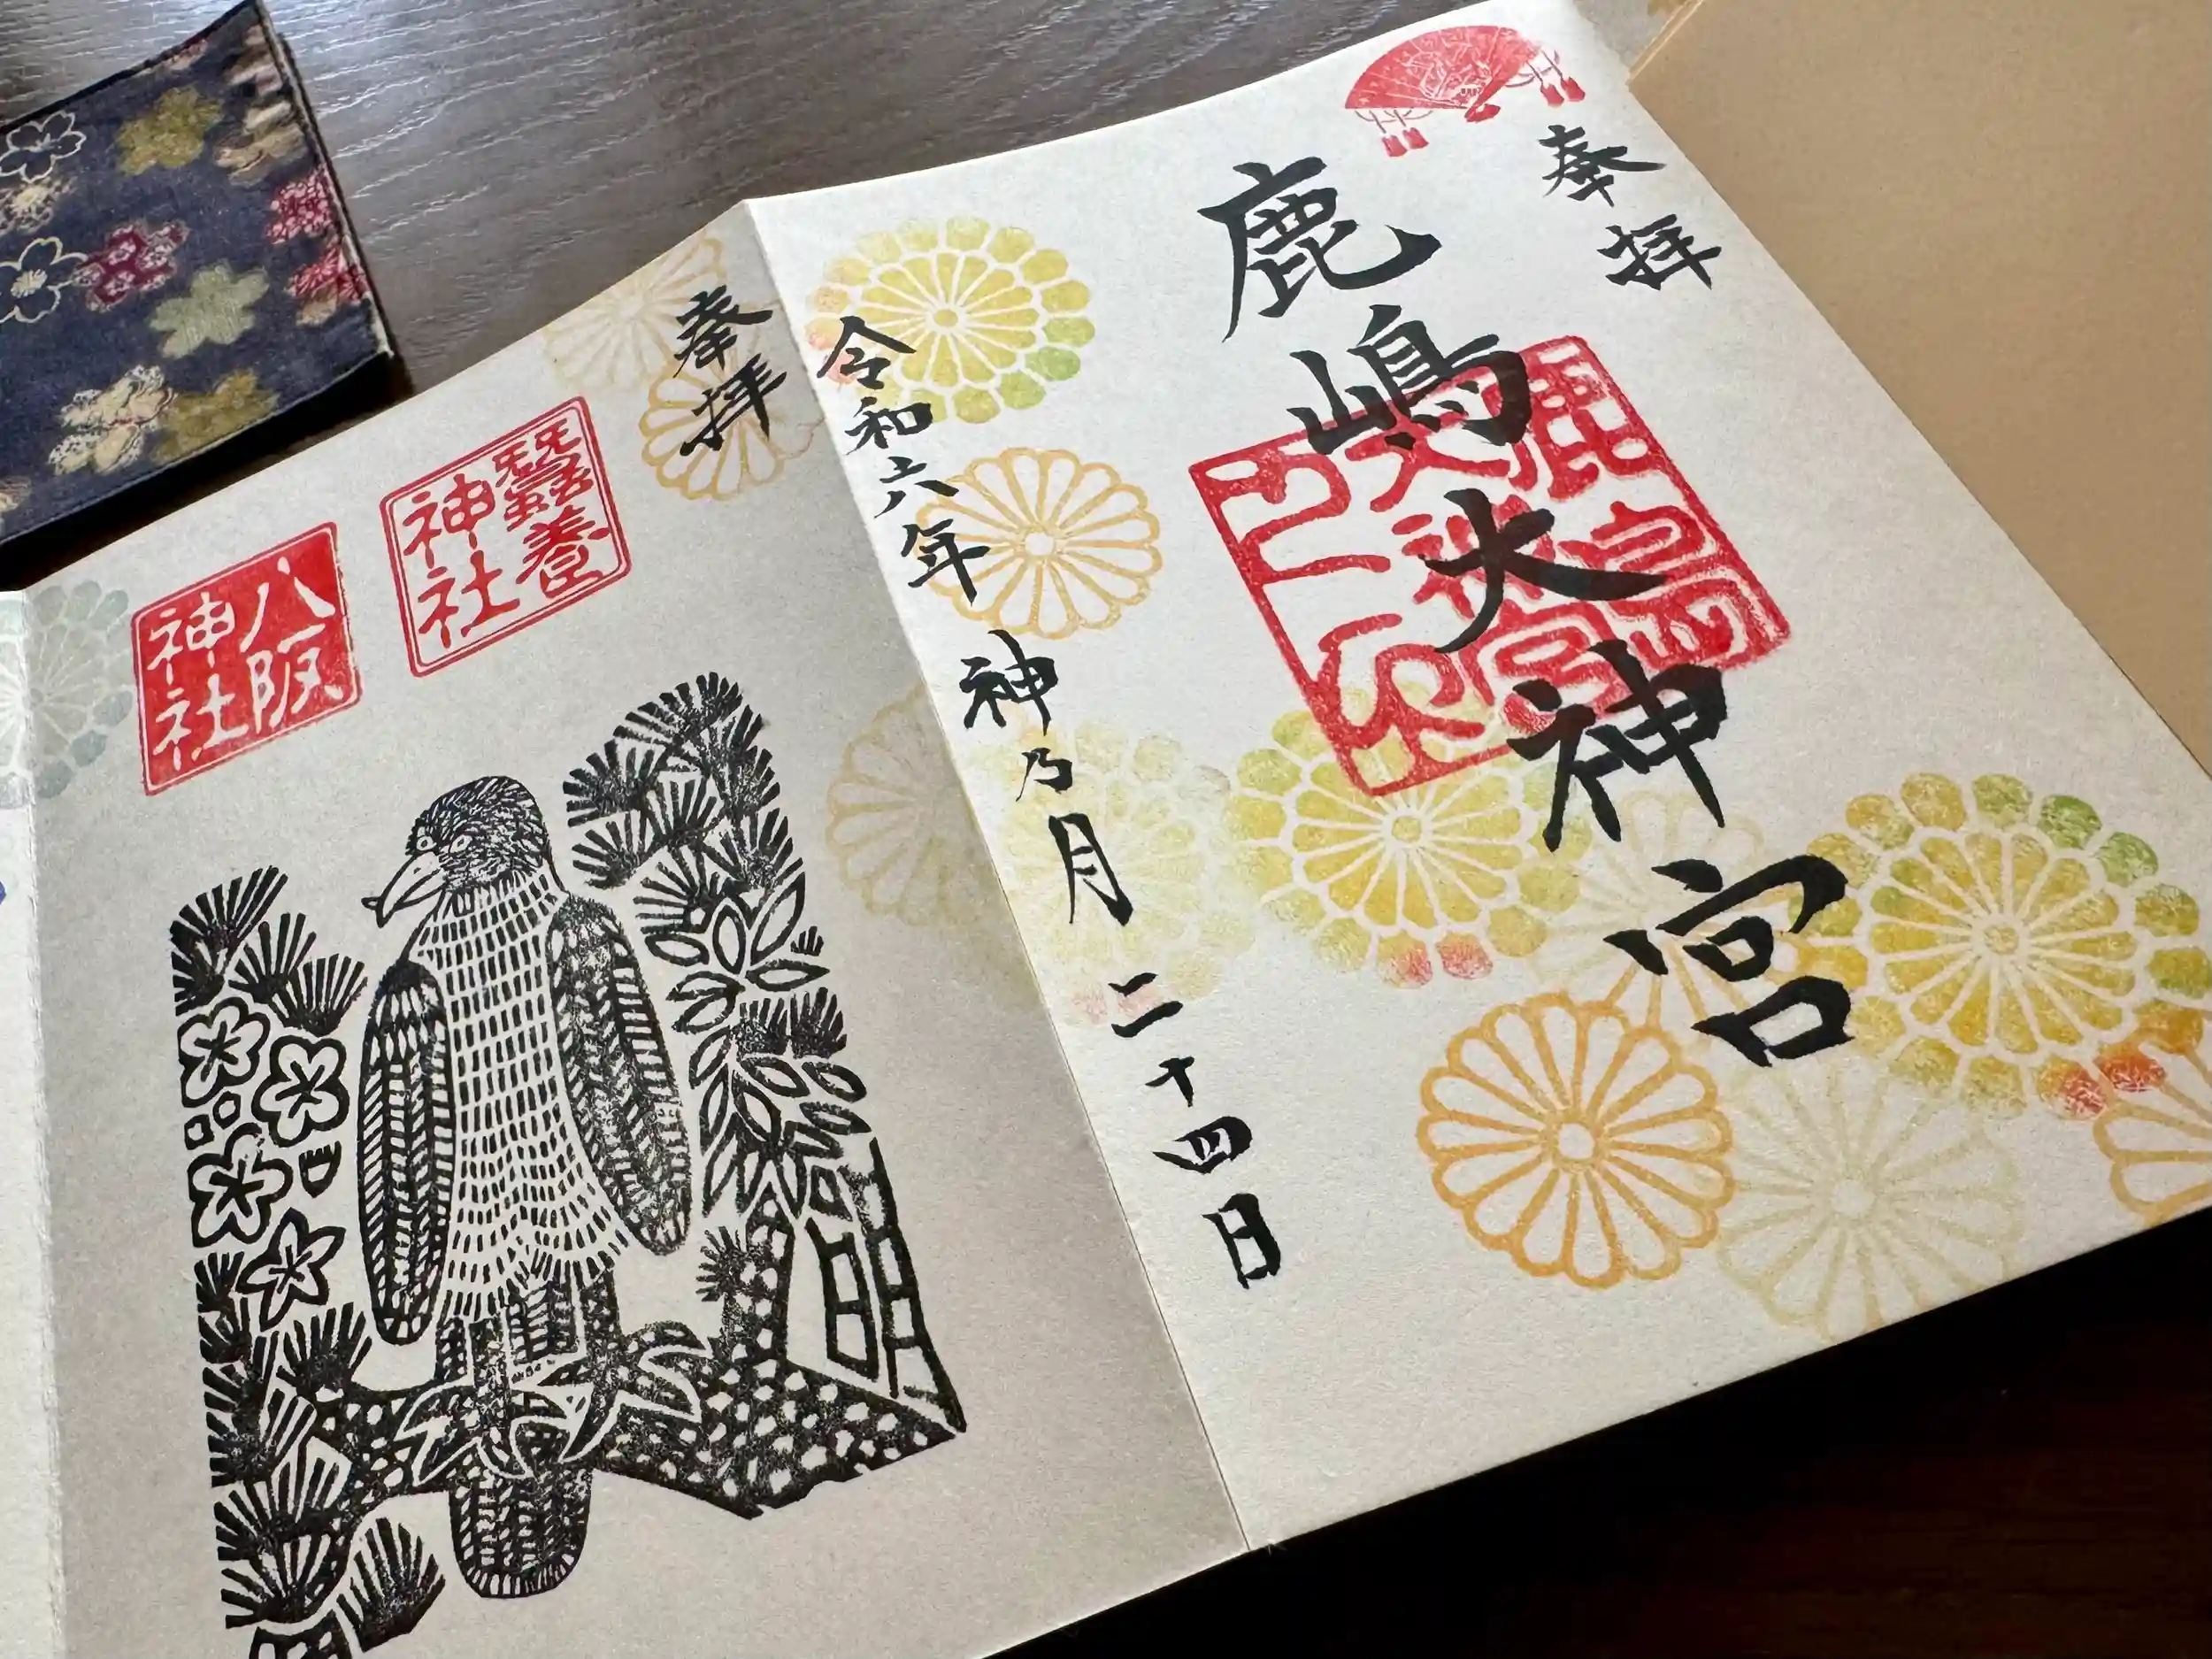 奉拝
鹿嶋大神宮
令和六年神乃月二十四日
奉拝
蠶養
神社
八阪
神社